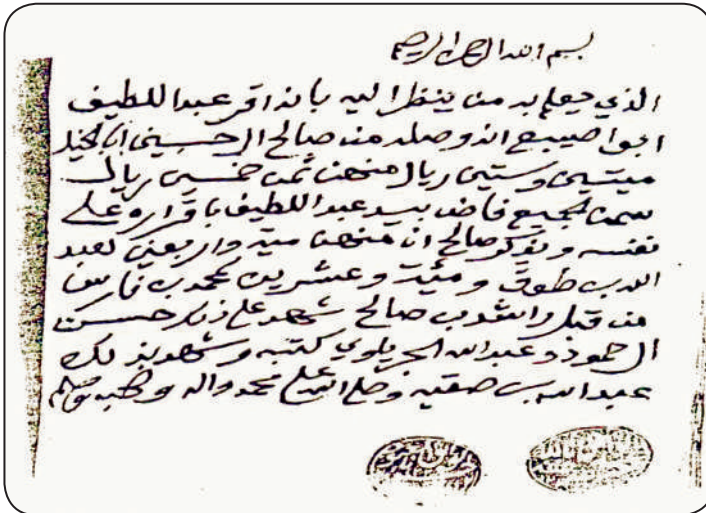 بسم الله الرحمن الرحيم
الذي يعلم به من ينظر اليه بانه اقر عبد اللطيف
ابوا صيبع انه وصله من صالح ال حسين ابا الخيل
ميتين وستين ريال منهن ثمن خمسين ريال
سمن الجميع قابض بيد عبد اللطيف باقراره على
نفسه ويذكر صالح ان منهن ميه واربعين لعبد
الله بن طوق ومئية وعشرين لمحمد بن فارس
من قبل راشد بن صالح شهد على ذلك حسن
ال حمود وعبدالله الجربلوي كتبه وشهد بذلك
عبد الله بن صقيه وصلى الله على محمد واله وصحبه وسلم